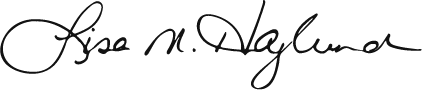 Lisa N. Haglund